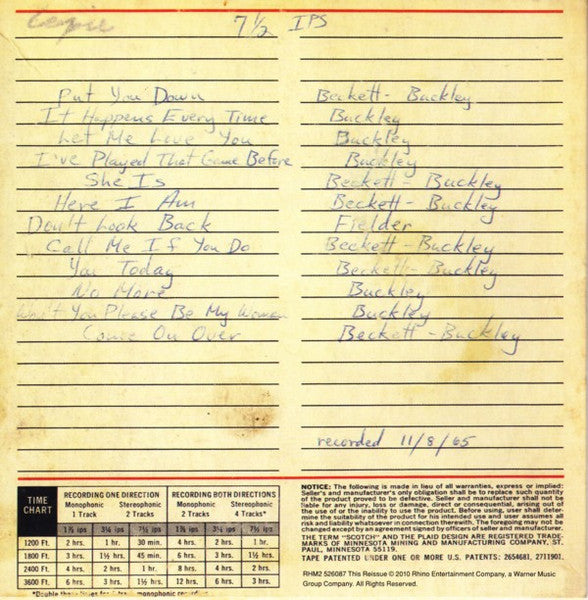 7 1/2 IPS
Put You Down Beckett - Buckley
It Happens Every Time Buckley
Let Me Love You Buckley
I've Played That Game Before Buckley
She Is Beckett - Buckley
Here I Am Beckett - Buckley
Don't Look Back Fielder
Call Me If You Do Beckett - Buckley
You Today Beckett - Buckley
No More Buckley
Won't You Please Be My Woman Buckley
Come On Over Beckett - Buckley
recorded 11/8/65
TIME CHART
RECORDING ONE DIRECTION RECORDING BOTH DIRECTIONS
Monophonic 1 Track Stereophonic 2 Tracks Monophonic 2 Tracks Stereophonic 4 Tracks*
1⅞ ips 3¾ ips 7½ ips 1⅞ ips 3¾ ips 7½ ips
1200 Ft. 2 hrs. 1 hr. 30 min. 4 hrs. 2 hrs. 1 hr.
1800 Ft. 3 hrs. 1½ hrs. 45 min. 6 hrs. 3 hrs. 1½ hrs.
2400 Ft. 4 hrs. 2 hrs. 1 hr. 8 hrs. 4 hrs. 2 hrs.
3600 Ft. 6 hrs. 3 hrs. 1½ hrs. 12 hrs. 6 hrs. 3 hrs.
NOTICE: The following is made in lieu of all warranties, express or implied:
Seller's and manufacturer's only obligation shall be to replace such quantity
of the product proved to be defective. Seller and manufacturer shall not be
liable for any injury, loss or damage, direct or consequential, arising out
of the use of or the inability to use the product. Before using, user shall deter-
mine the suitability of the product for his intended use and user assumes all
risk and liability whatsoever in connection therewith. The foregoing may not be
changed except by an agreement signed by officers of seller and manufacturer.
THE TERM "SCOTCH" AND THE PLAID DESIGN ARE REGISTERED TRADE-
MARKS OF MINNESOTA MINING AND MANUFACTURING COMPANY, ST.
PAUL, MINNESOTA 55119.
TAPE PATENTED UNDER ONE OR MORE U.S. PATENTS: 2654681, 2711901.
RHM2 526087 This Reissue © 2010 Rhino Entertainment Company, a Warner Music
Group Company. All Rights Reserved.